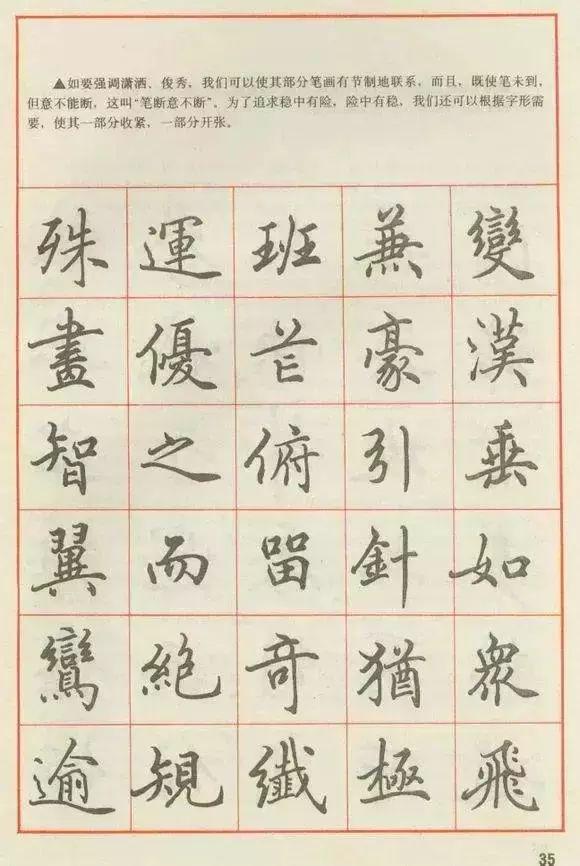 ▲如要强调潇洒、俊秀，我们可以使其部分笔画有节制地联系，而且，既使笔未到，
但意不能断，这叫“笔断意不断”。为了追求稳中有险，险中有稳，我们还可以根据字形需
要，使其一部分收紧，一部分开张。
殊 運 班 兼 變
畫 優 芒 豪 漢
智 之 俯 引 垂
翼 而 留 針 如
鸞 絕 奇 猶 衆
逾 規 纖 極 飛
35